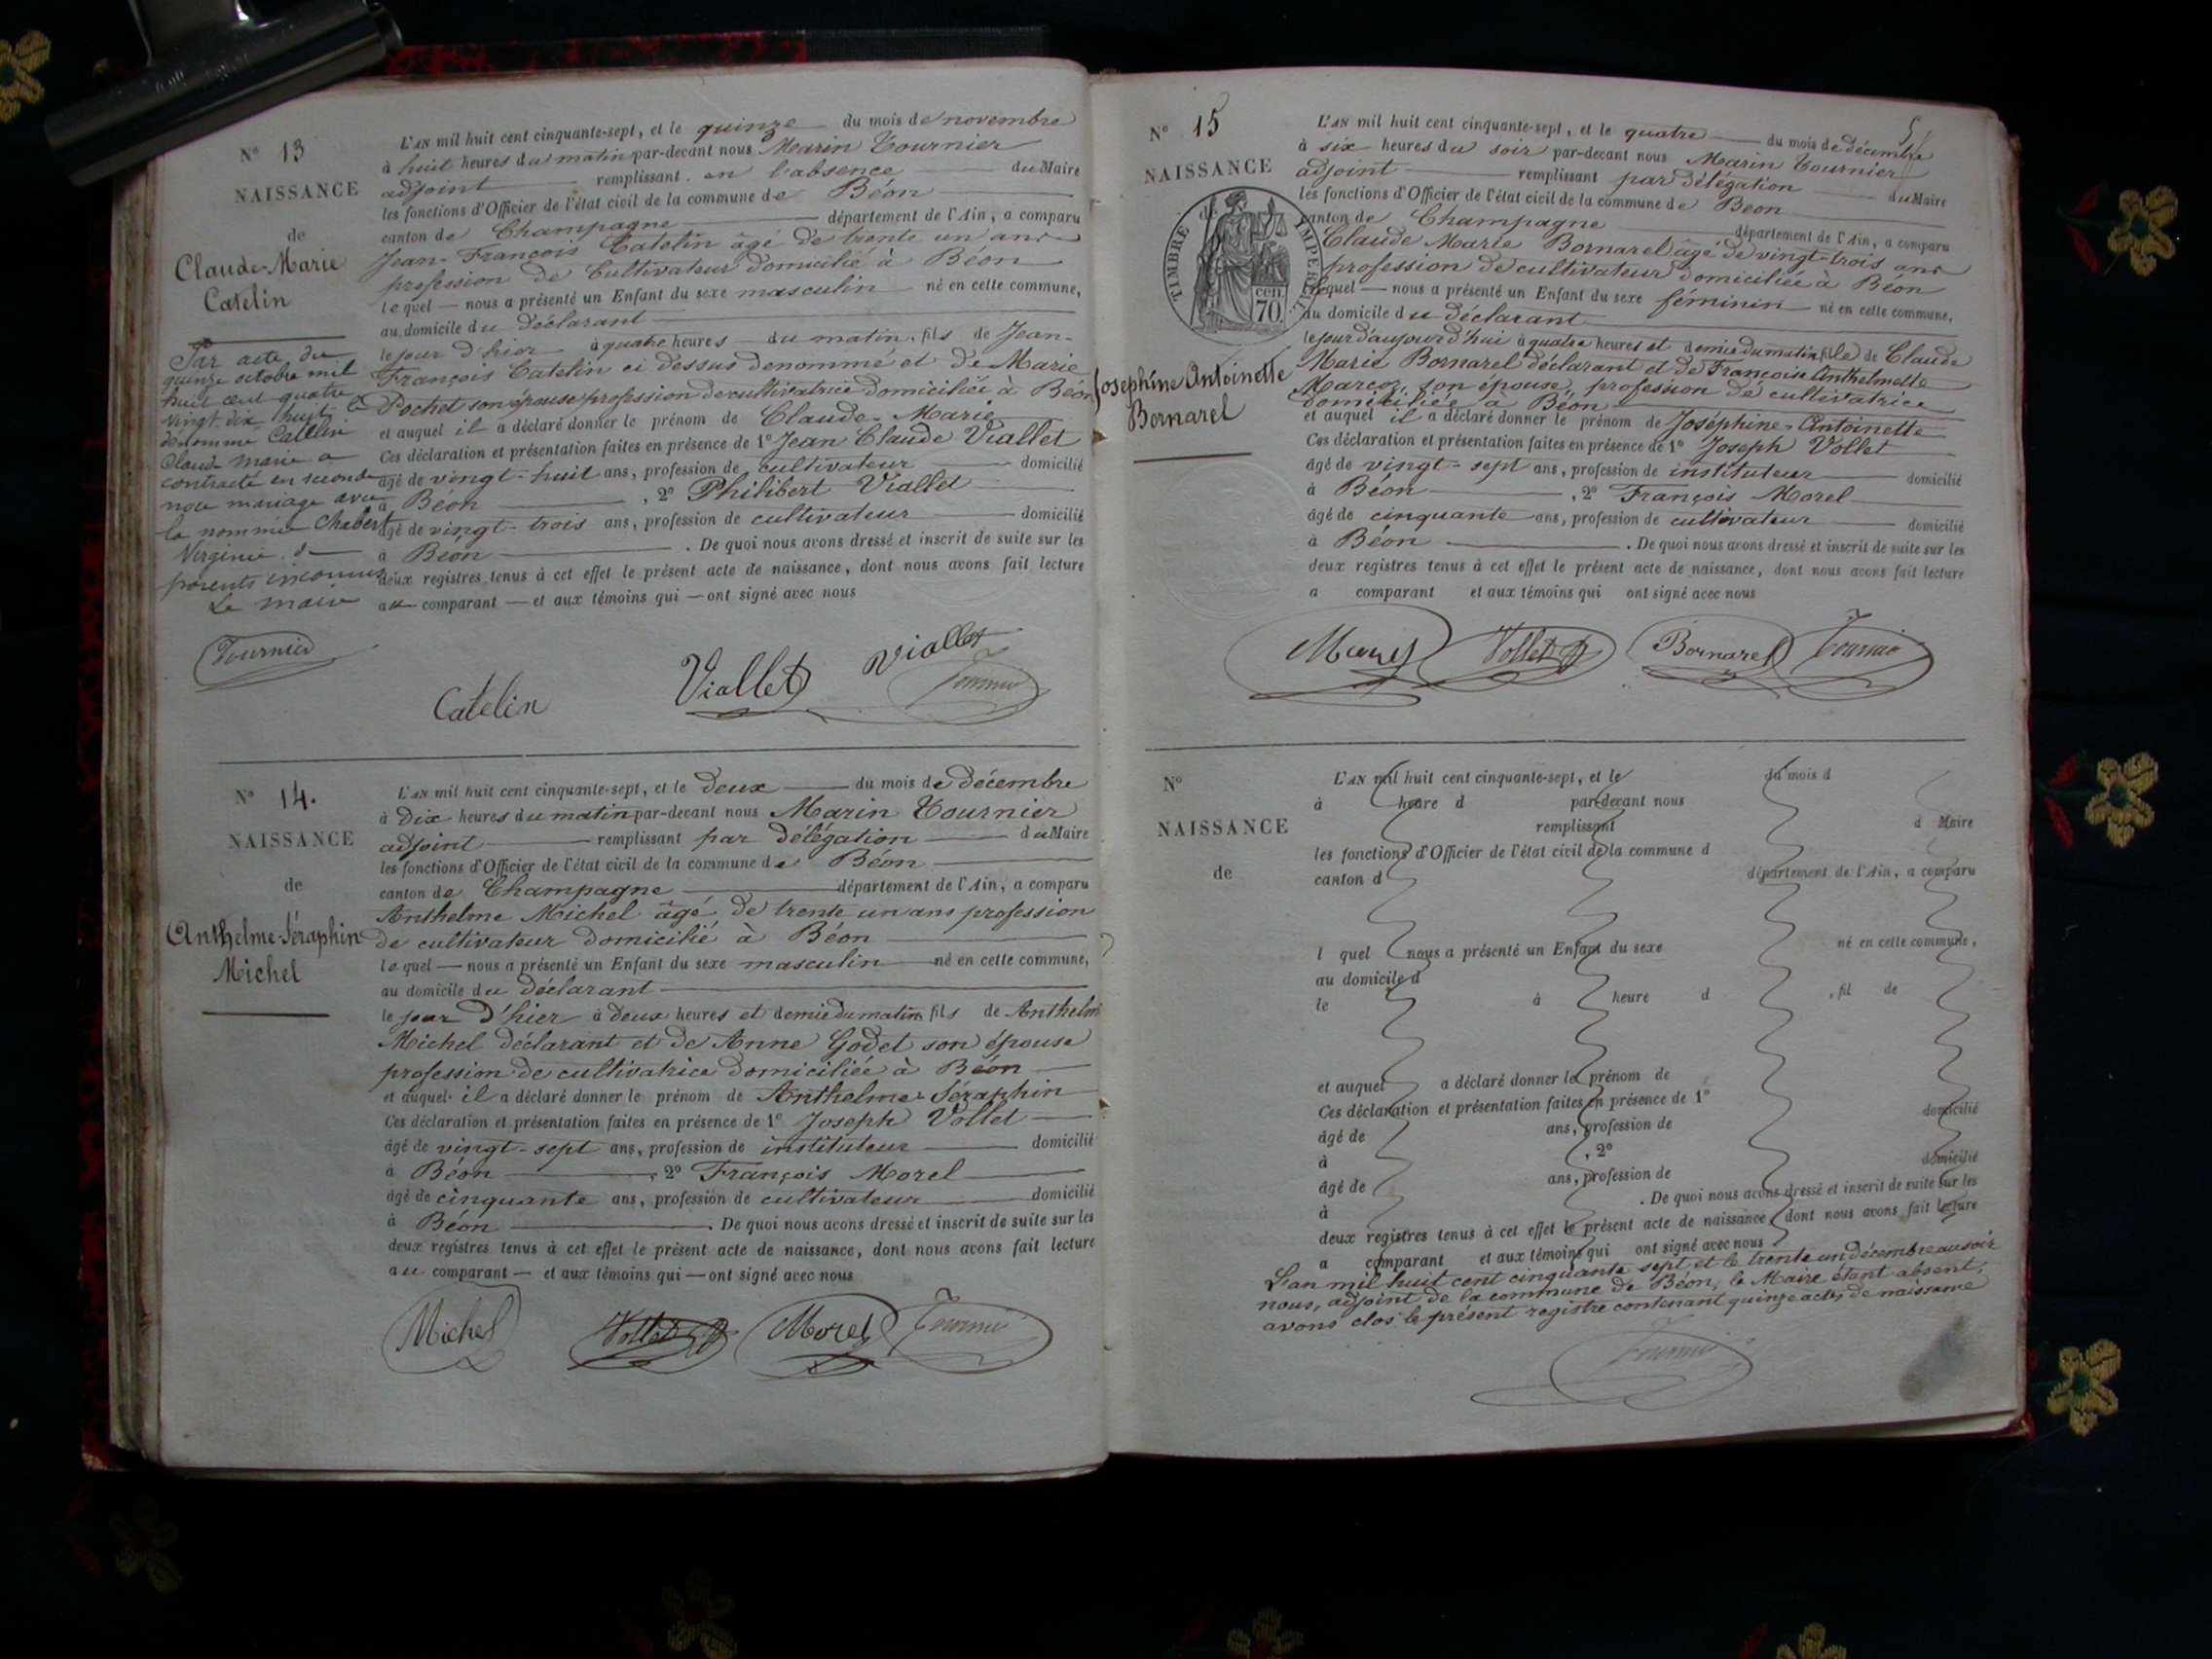 N° 13
NAISSANCE
de
Claude-Marie
Catelin
Par acte du
quinze octobre mil
huit cent quatre
vingt dix huit le
dénommé Catelin
Claude marie a
contracté en seconde
noce mariage avec
la nommée Chabert
Virginie, de
parents inconnus
Le maire
Tournier
L'AN mil huit cent cinquante-sept, et le quinze du mois de novembre
à huit heures du matin par-devant nous Marin Tournier
adjoint remplissant en l'absence du Maire
les fonctions d'Officier de l'état civil de la commune de Béon
canton de Champagne département de l'Ain, a comparu
Jean-François Catelin âgé de trente un ans
profession de Cultivateur domicilié à Béon
lequel — nous a présenté un Enfant du sexe masculin né en cette commune,
au domicile du déclarant
le jour d'hier à quatre heures du matin, fils de Jean-
François Catelin ci dessus denommé et de Marie
Pochet son épouse profession de cultivatrice domiciliée à Béon
et auquel il a déclaré donner le prénom de Claude-Marie
Ces déclaration et présentation faites en présence de 1° Jean Claude Viallet
âgé de vingt-huit ans, profession de cultivateur domicilié
à Béon , 2° Philibert Viallet
âgé de vingt-trois ans, profession de cultivateur domicilié
à Béon . De quoi nous avons dressé et inscrit de suite sur les
deux registres tenus à cet effet le présent acte de naissance, dont nous avons fait lecture
au comparant — et aux témoins qui — ont signé avec nous
Catelin Viallet Viallet Tournier
N° 14.
NAISSANCE
de
Anthelme-Séraphin
Michel
L'AN mil huit cent cinquante-sept, et le deux du mois de décembre
à Dix heures du matin par-devant nous Marin Tournier
adjoint remplissant par délégation du Maire
les fonctions d'Officier de l'état civil de la commune de Béon
canton de Champagne département de l'Ain, a comparu
Anthelme Michel âgé de trente un ans profession
de cultivateur domicilié à Béon
lequel — nous a présenté un Enfant du sexe masculin né en cette commune,
au domicile du déclarant
le jour d'hier à deux heures et demie du matin fils de Anthelm
Michel déclarant et de Anne Godet son épouse
profession de cultivatrice domiciliée à Béon
et auquel il a déclaré donner le prénom de Anthelme-Séraphin
Ces déclaration et présentation faites en présence de 1° Joseph Vollet
âgé de vingt-sept ans, profession de instituteur domicilié
à Béon , 2° François Morel
âgé de cinquante ans, profession de cultivateur domicilié
à Béon . De quoi nous avons dressé et inscrit de suite sur les
deux registres tenus à cet effet le présent acte de naissance, dont nous avons fait lecture
au comparant — et aux témoins qui — ont signé avec nous
Michel Vollet Morel Tournier
N° 15
NAISSANCE
de
TIMBRE IMPÉRIAL
70 cen.
Josephine Antoinette
Bornarel
L'AN mil huit cent cinquante-sept, et le quatre du mois de décembre
à six heures du soir par-devant nous Marin Tournier
adjoint remplissant par délégation du Maire
les fonctions d'Officier de l'état civil de la commune de Béon
canton de Champagne département de l'Ain, a comparu
Claude Marie Bornarel âgé de vingt-trois ans
profession de cultivateur domiciliée à Béon
lequel — nous a présenté un Enfant du sexe féminin né en cette commune,
au domicile du déclarant
le jour d'aujourd'hui à quatre heures et demie du matin file de Claude
Marie Bornarel déclarant et de Françoise Anthelmette
Marcoz, son épouse, profession de cultivatrice
domiciliée à Béon
et auquel il a déclaré donner le prénom de Joséphine-Antoinette
Ces déclaration et présentation faites en présence de 1° Joseph Vollet
âgé de vingt-sept ans, profession de instituteur domicilié
à Béon , 2° François Morel
âgé de cinquante ans, profession de cultivateur domicilié
à Béon . De quoi nous avons dressé et inscrit de suite sur les
deux registres tenus à cet effet le présent acte de naissance, dont nous avons fait lecture
a comparant et aux témoins qui ont signé avec nous
Vollet Bornarel Tournier
N°
NAISSANCE
de
L'AN mil huit cent cinquante-sept, et le du mois d
à heure d par-devant nous
remplissant d Maire
les fonctions d'Officier de l'état civil de la commune d
canton d département de l'Ain, a comparu
l quel nous a présenté un Enfant du sexe né en cette commune,
au domicile d
le à heure d , fil de
et auquel a déclaré donner le prénom de
Ces déclaration et présentation faites en présence de 1°
âgé de ans, profession de domicilié
à , 2°
âgé de ans, profession de domicilié
à . De quoi nous avons dressé et inscrit de suite sur les
deux registres tenus à cet effet le présent acte de naissance, dont nous avons fait lecture
a comparant et aux témoins qui ont signé avec nous
L'an mil huit cent cinquante sept et le trente un décembre au soir
nous, adjoint de la commune de Béon, le Maire étant absent,
avons clos le présent registre contenant quinze actes de naissance
Tournier